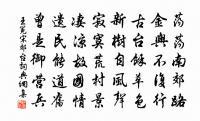 蕩蕩南郊路
金輿不復行
古台餘草色
新樹自風聲
寂寞荒村景
淒涼故國情
遺民能道舊
曾是御營兵
王冕宋郊台詞典網集